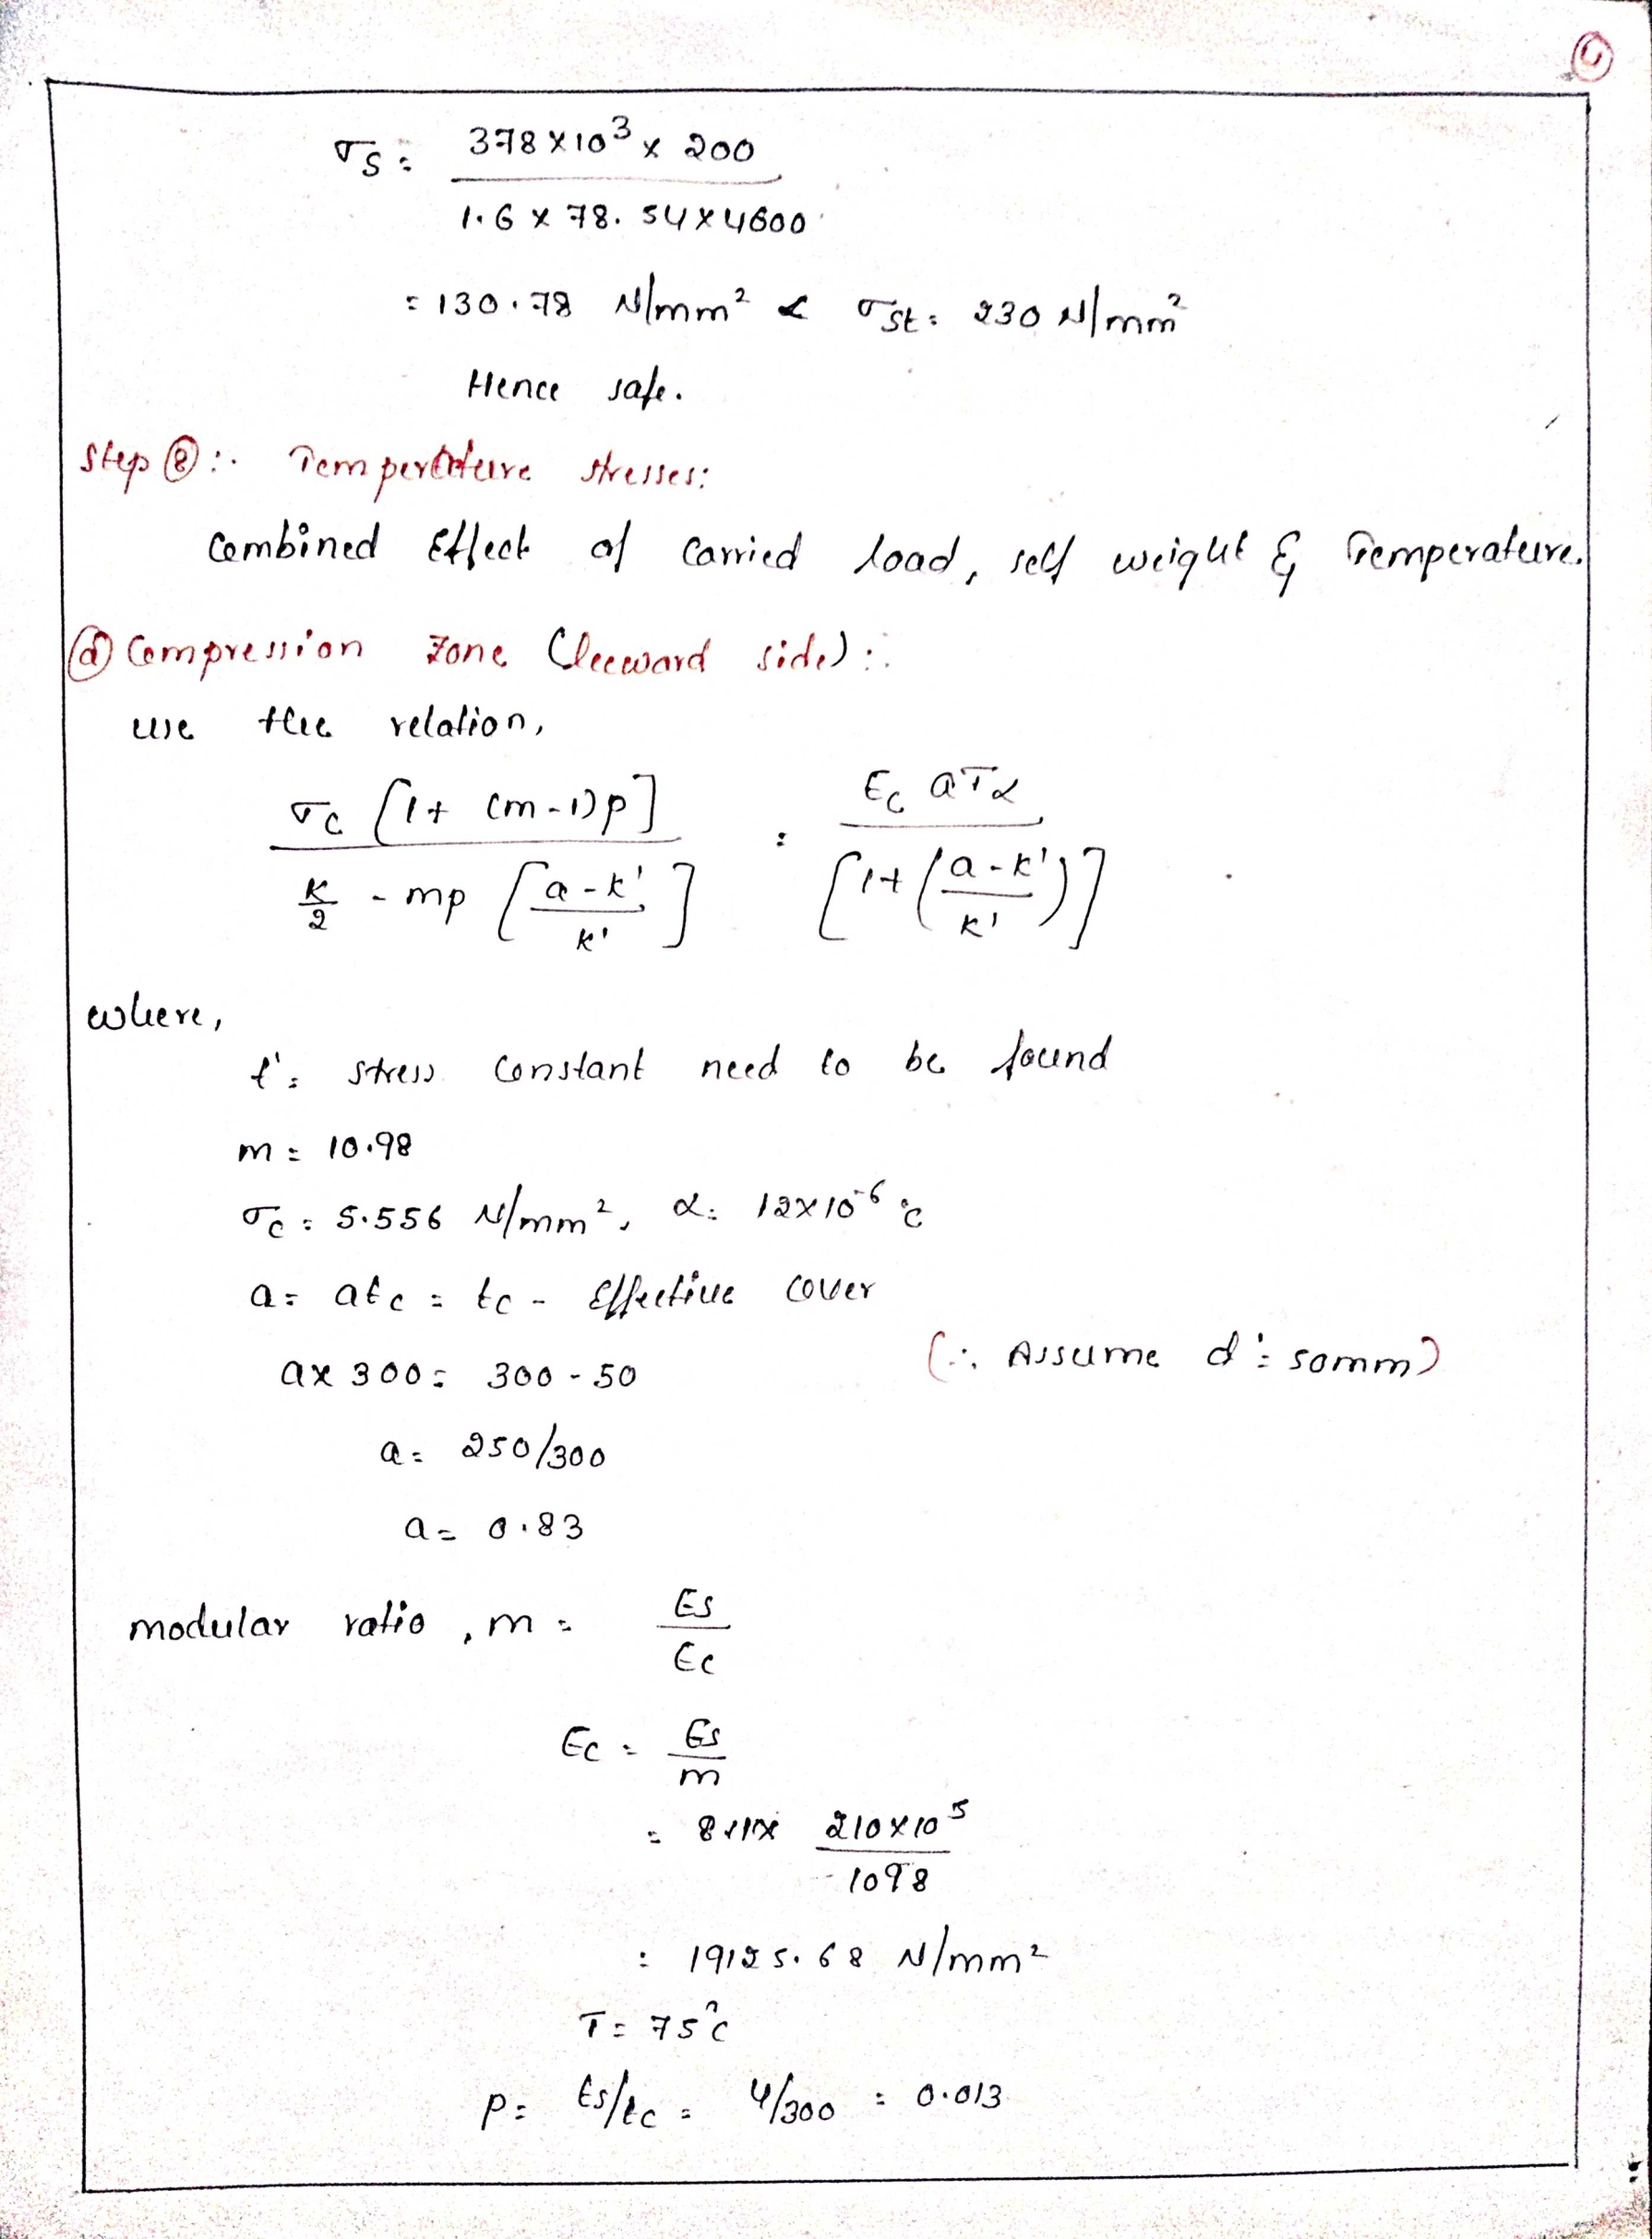 σs = 378×10³ × 200 / 1.6 × 78.54×4600
= 130.78 N/mm² < σst = 230 N/mm²
Hence safe.
Step ⑧:. Temperature stresses:
Combined Effect of Carried load, self weight & Temperature.
ⓐ Compression Zone (leeward side):.
use the relation,
σc [1+ (m-1)p] / K/2 - mp [a-k'/k'] = Ec aTα / [1+(a-k'/k')]
where,
t' = stress constant need to be found
m = 10.98
σc = 5.556 N/mm², α = 12×10⁻⁶ °c
a = atc = tc - Effective cover
a× 300 = 300 - 50 (∵ Assume d' = 50mm)
a = 250/300
a = 0.83
modular ratio, m = Es/Ec
Ec = Es/m
= 210×10⁵ / 1098
= 19125.68 N/mm²
T = 75°c
P = ts/tc = 4/300 = 0.013